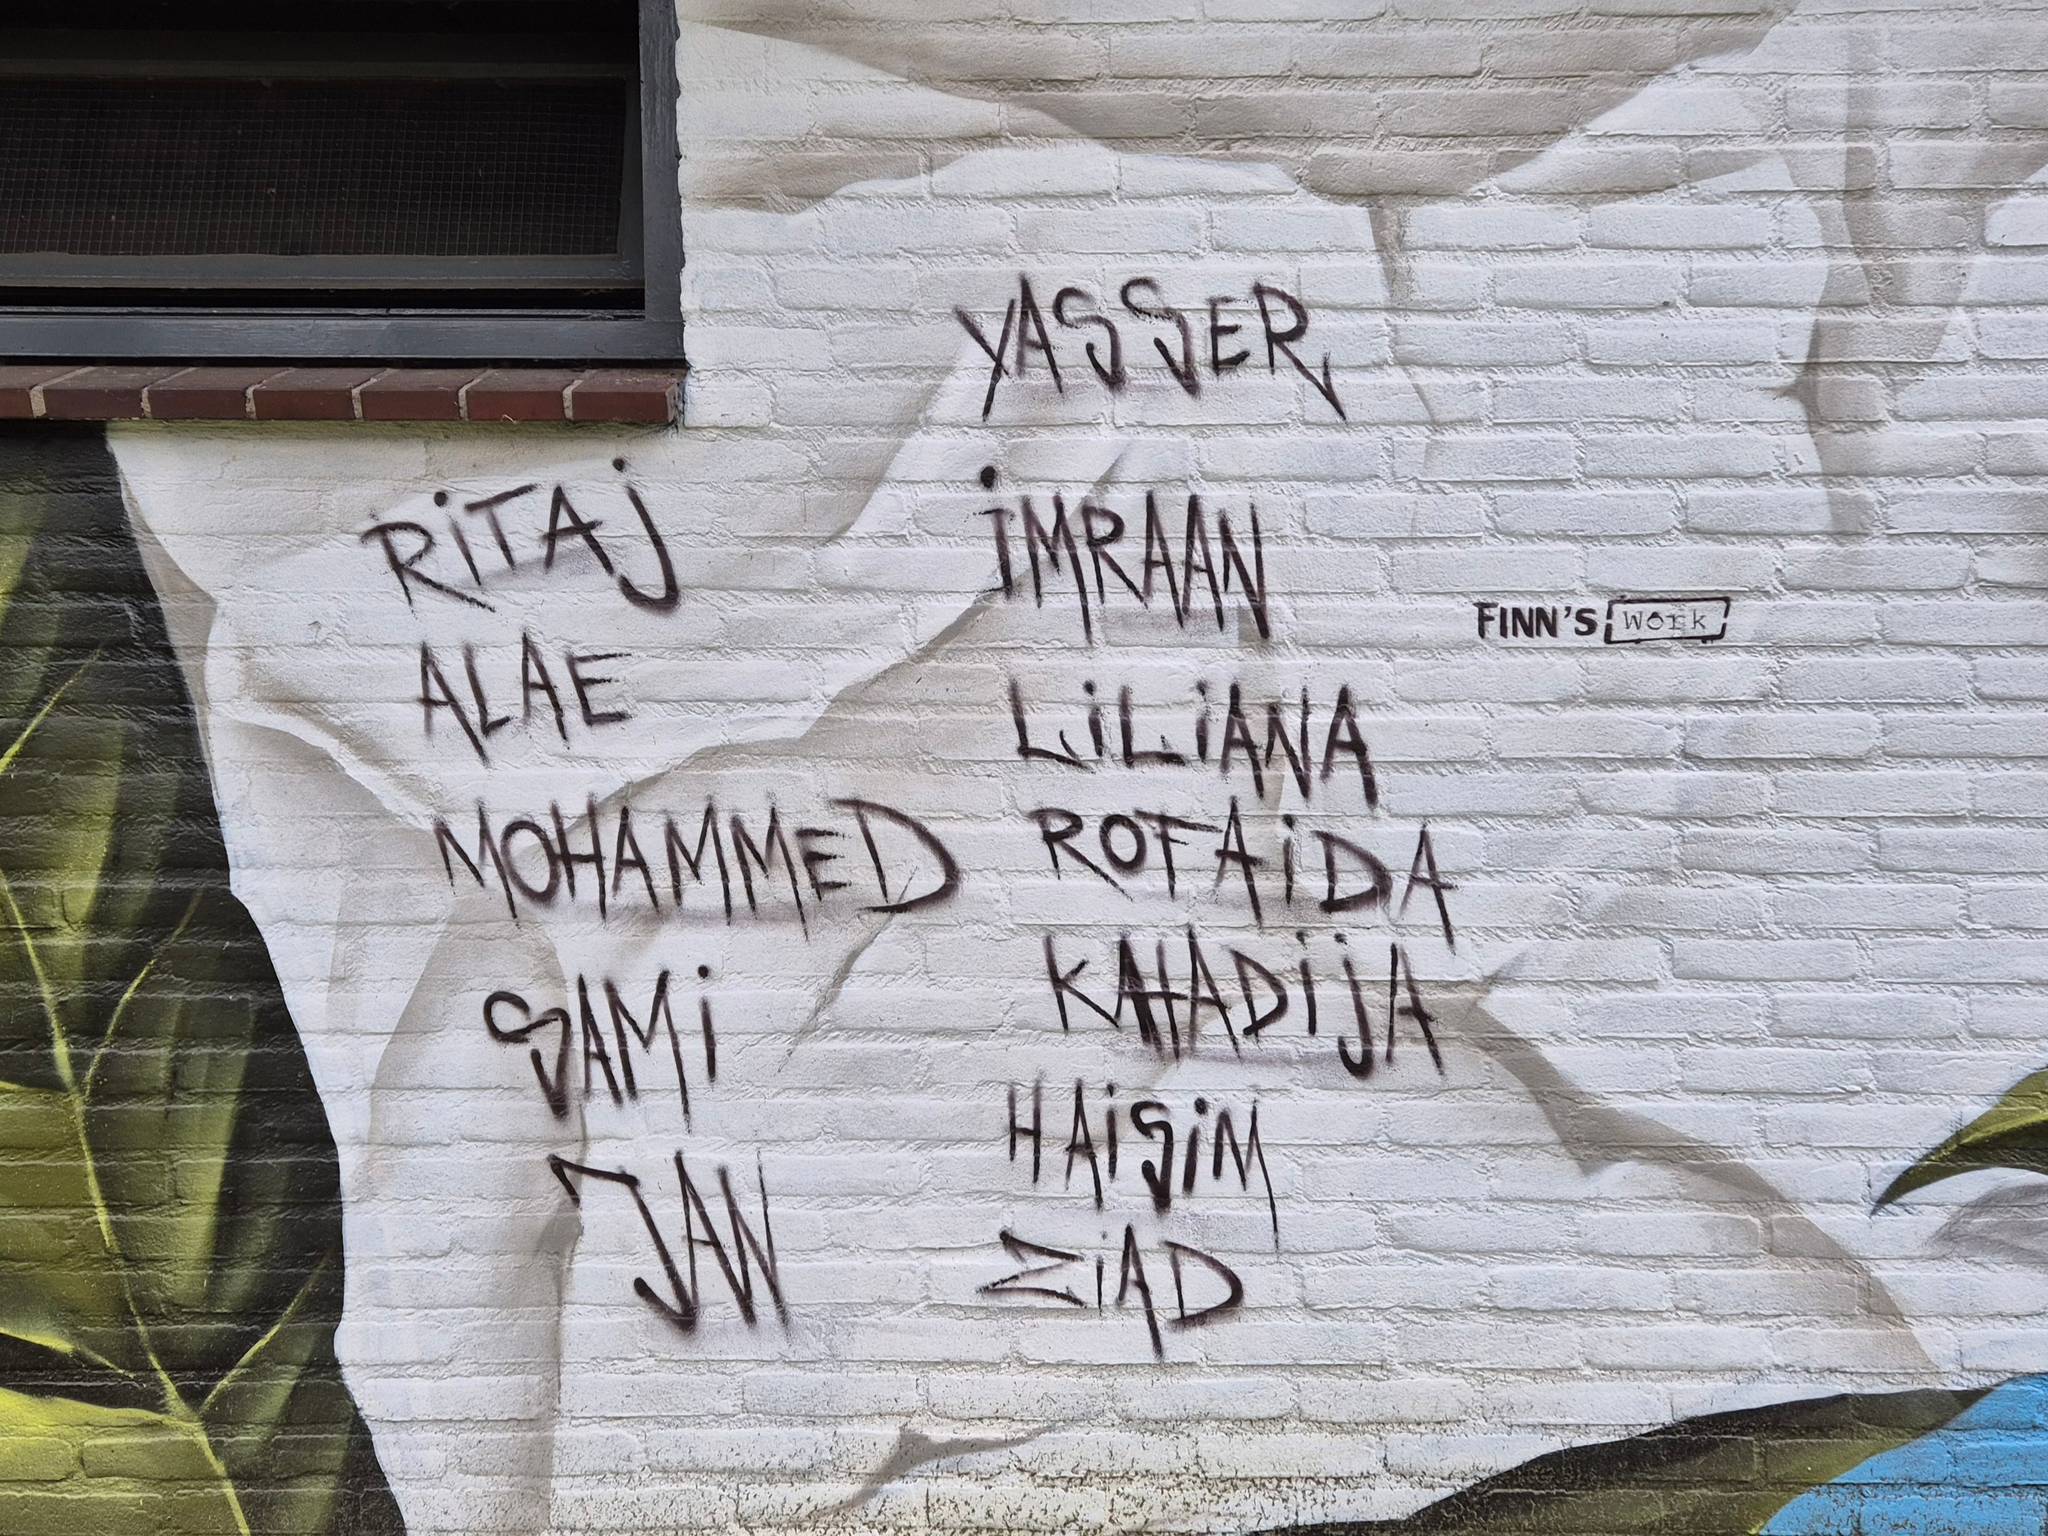 RiTAj
ALAE
MOHAMMED
SAMi
JAN
YASSER
iMRAAN
LiLiANA
ROFAiDA
KHADijA
HAiSiM
ZiAD
FINN'S work